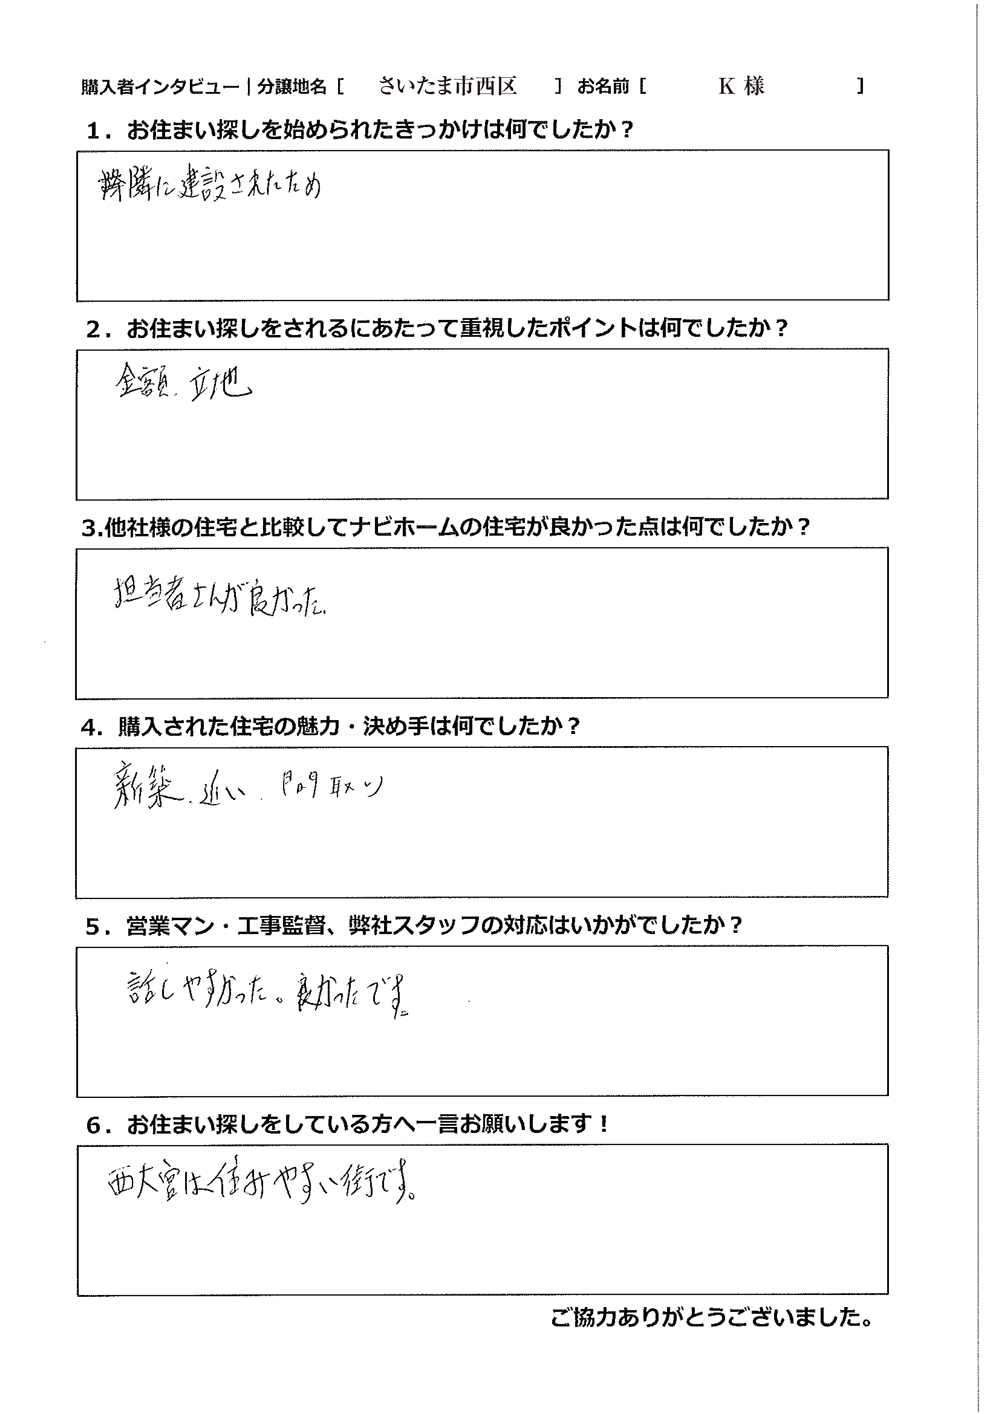 購入者インタビュー|分譲地名 [ さいたま市西区 ] お名前 [ K 様 ]
1. お住まい探しを始められたきっかけは何でしたか?
隣に建設されたため
2. お住まい探しをされるにあたって重視したポイントは何でしたか?
金額、立地
3.他社様の住宅と比較してナビホームの住宅が良かった点は何でしたか?
担当者さんが良かった。
4. 購入された住宅の魅力・決め手は何でしたか?
新築、近い、間取り
5. 営業マン・工事監督、弊社スタッフの対応はいかがでしたか?
話しやすかった。良かったです。
6. お住まい探しをしている方へ一言お願いします!
西大宮は住みやすい街です。
ご協力ありがとうございました。